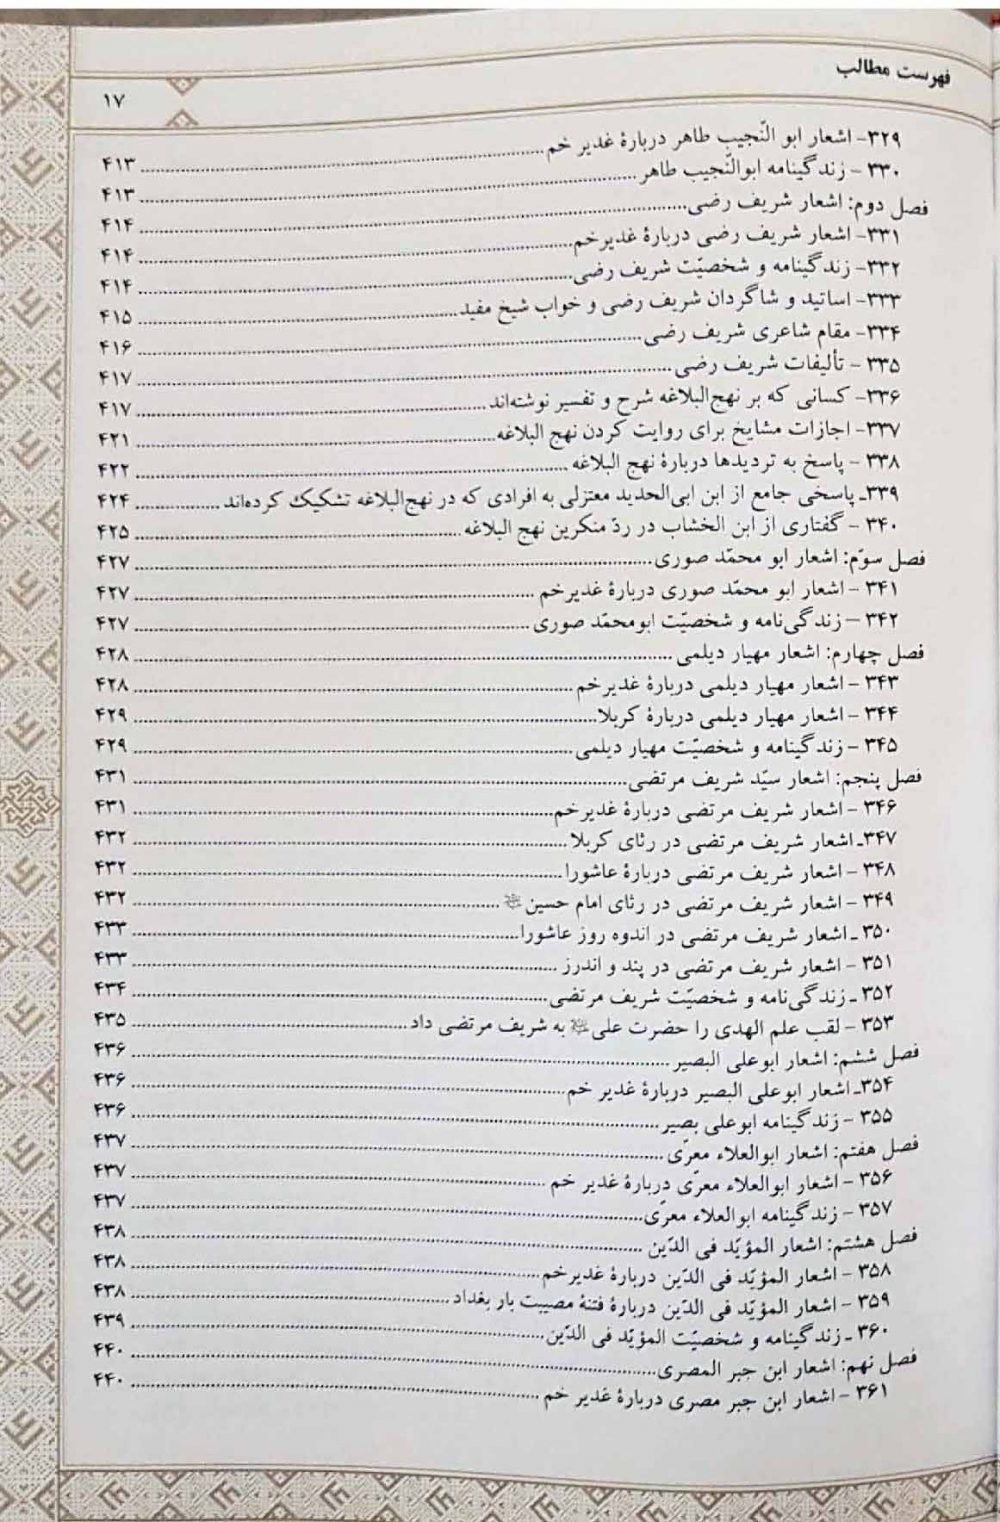 فهرست مطالب
۱۷
۳۲۹- اشعار ابو النّجیب طاهر دربارهٔ غدیر خم ........ ۴۱۳
۳۳۰ - زندگینامه ابوالنّجیب طاهر ........ ۴۱۳
فصل دوم: اشعار شریف رضی ........ ۴۱۴
۳۳۱- اشعار شریف رضی دربارهٔ غدیرخم ........ ۴۱۴
۳۳۲- زندگینامه و شخصیّت شریف رضی ........ ۴۱۴
۳۳۳- اساتید و شاگردان شریف رضی و خواب شیخ مفید ........ ۴۱۵
۳۳۴- مقام شاعری شریف رضی ........ ۴۱۶
۳۳۵ - تألیفات شریف رضی ........ ۴۱۷
۳۳۶- کسانی که بر نهج‌البلاغه شرح و تفسیر نوشته‌اند ........ ۴۱۷
۳۳۷- اجازات مشایخ برای روایت کردن نهج البلاغه ........ ۴۲۱
۳۳۸ - پاسخ به تردیدها دربارهٔ نهج البلاغه ........ ۴۲۲
۳۳۹ـ پاسخی جامع از ابن ابی‌الحدید معتزلی به افرادی که در نهج‌البلاغه تشکیک کرده‌اند ........ ۴۲۴
۳۴۰ - گفتاری از ابن الخشاب در ردّ منکرین نهج البلاغه ........ ۴۲۵
فصل سوّم: اشعار ابو محمّد صوری ........ ۴۲۷
۳۴۱ - اشعار ابو محمّد صوری دربارهٔ غدیرخم ........ ۴۲۷
۳۴۲ – زندگی‌نامه و شخصیّت ابومحمّد صوری ........ ۴۲۷
فصل چهارم: اشعار مهیار دیلمی ........ ۴۲۸
۳۴۳ - اشعار مهیار دیلمی دربارهٔ غدیرخم ........ ۴۲۸
۳۴۴ - اشعار مهیار دیلمی دربارهٔ کربلا ........ ۴۲۹
۳۴۵ - زندگینامه و شخصیّت مهیار دیلمی ........ ۴۲۹
فصل پنجم: اشعار سیّد شریف مرتضی ........ ۴۳۱
۳۴۶ - اشعار شریف مرتضی دربارهٔ غدیرخم ........ ۴۳۱
۳۴۷ـ اشعار شریف مرتضی در رثای کربلا ........ ۴۳۲
۳۴۸ - اشعار شریف مرتضی دربارهٔ عاشورا ........ ۴۳۲
۳۴۹ - اشعار شریف مرتضی در رثای امام حسین ........ ۴۳۲
۳۵۰ ـ اشعار شریف مرتضی در اندوه روز عاشورا ........ ۴۳۳
۳۵۱ - اشعار شریف مرتضی در پند و اندرز ........ ۴۳۳
۳۵۲ ـ زندگی‌نامه و شخصیّت شریف مرتضی ........ ۴۳۴
۳۵۳ - لقب علم الهدی را حضرت علی به شریف مرتضی داد ........ ۴۳۵
فصل ششم: اشعار ابوعلی البصیر ........ ۴۳۶
۳۵۴ـ اشعار ابوعلی البصیر دربارهٔ غدیر خم ........ ۴۳۶
۳۵۵ - زندگینامه ابوعلی بصیر ........ ۴۳۶
فصل هفتم: اشعار ابوالعلاء معرّی ........ ۴۳۷
۳۵۶ - اشعار ابوالعلاء معرّی دربارهٔ غدیر خم ........ ۴۳۷
۳۵۷ - زندگینامه ابوالعلاء معرّی ........ ۴۳۷
فصل هشتم: اشعار المؤیّد فی الدّین ........ ۴۳۸
۳۵۸ - اشعار المؤیّد فی الدّین دربارهٔ غدیرخم ........ ۴۳۸
۳۵۹ - اشعار المؤیّد فی الدّین دربارهٔ فتنهٔ مصیبت بار بغداد ........ ۴۳۸
۳۶۰ ـ زندگینامه و شخصیّت المؤیّد فی الدّین ........ ۴۳۹
فصل نهم: اشعار ابن جبر المصری ........ ۴۴۰
۳۶۱ - اشعار ابن جبر مصری دربارهٔ غدیر خم ........ ۴۴۰